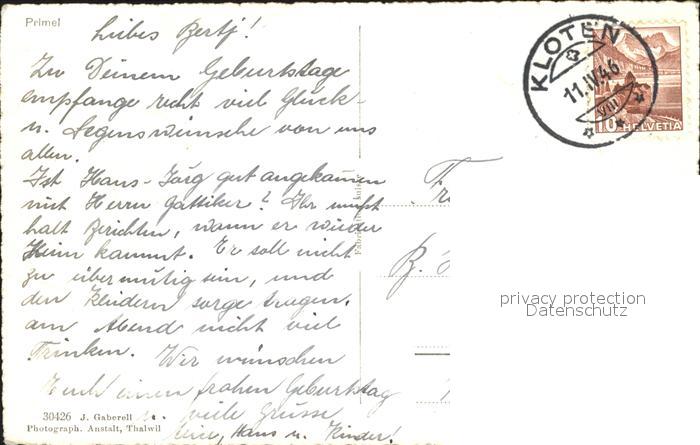 Primel
Liebes Bertj!
Zu Deinem Geburtstage
empfange recht viel Glück-
u. Segenswünsche von uns
allen.
Ist Hans-Jörg gut angekommen
mit Herrn Gattiker? Ihr müsst
halt Berichten, wann er wieder
Heim kommt. Er soll nicht
zu übermütig sein, und
den Kleidern sorge tragen.
am Abend nicht viel
Trinken. Wir wünschen
Euch einen frohen Geburtstag
u. viele Grüsse
Hans u. Kinder!
30426 J. Gaberell
Photograph. Anstalt, Thalwil
KLOTEN
11.IV.46
VIII
10 HELVETIA
Fr
B.
privacy protection
Datenschutz